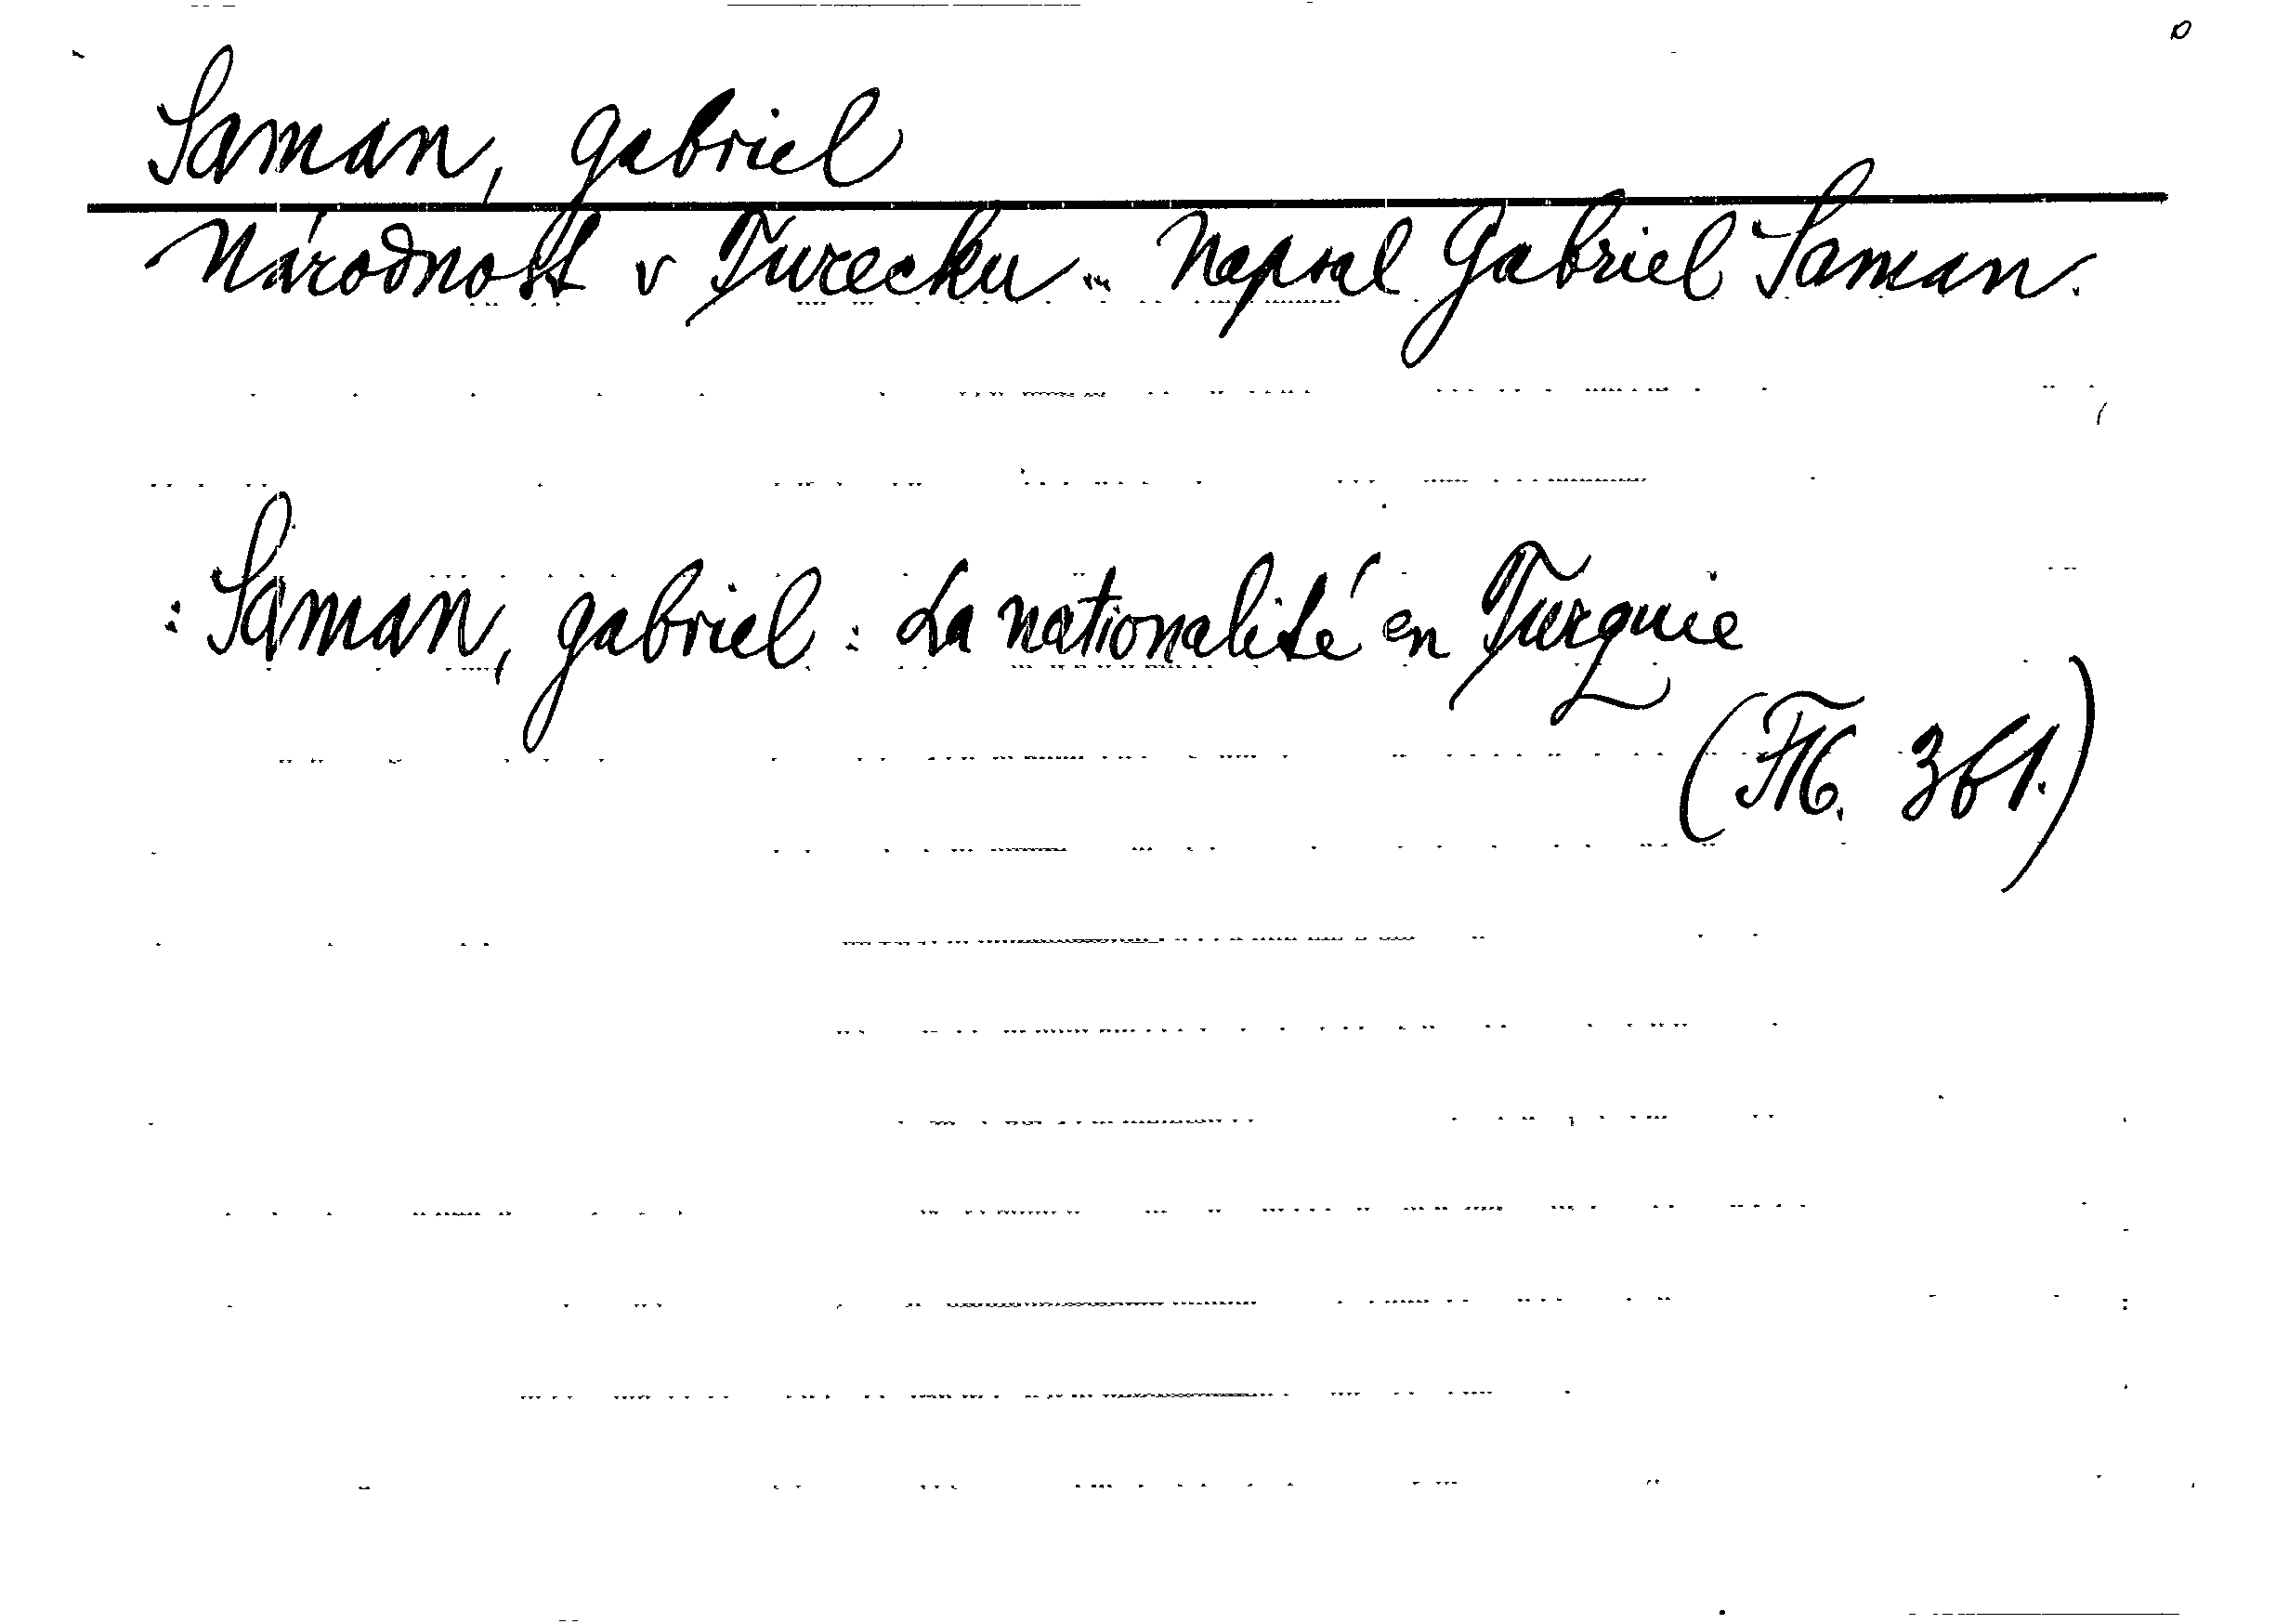 Saman, Gabriel
Národnost v Turecku... Napsal Gabriel Saman.
: Saman, Gabriel : La nationalité en Turquie